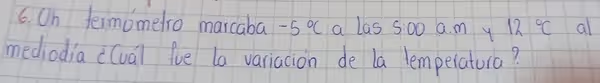 6. Un termómetro marcaba -5 °C a las 5:00 a.m y 12 °C al
mediodía ¿Cuál fue la variación de la temperatura?